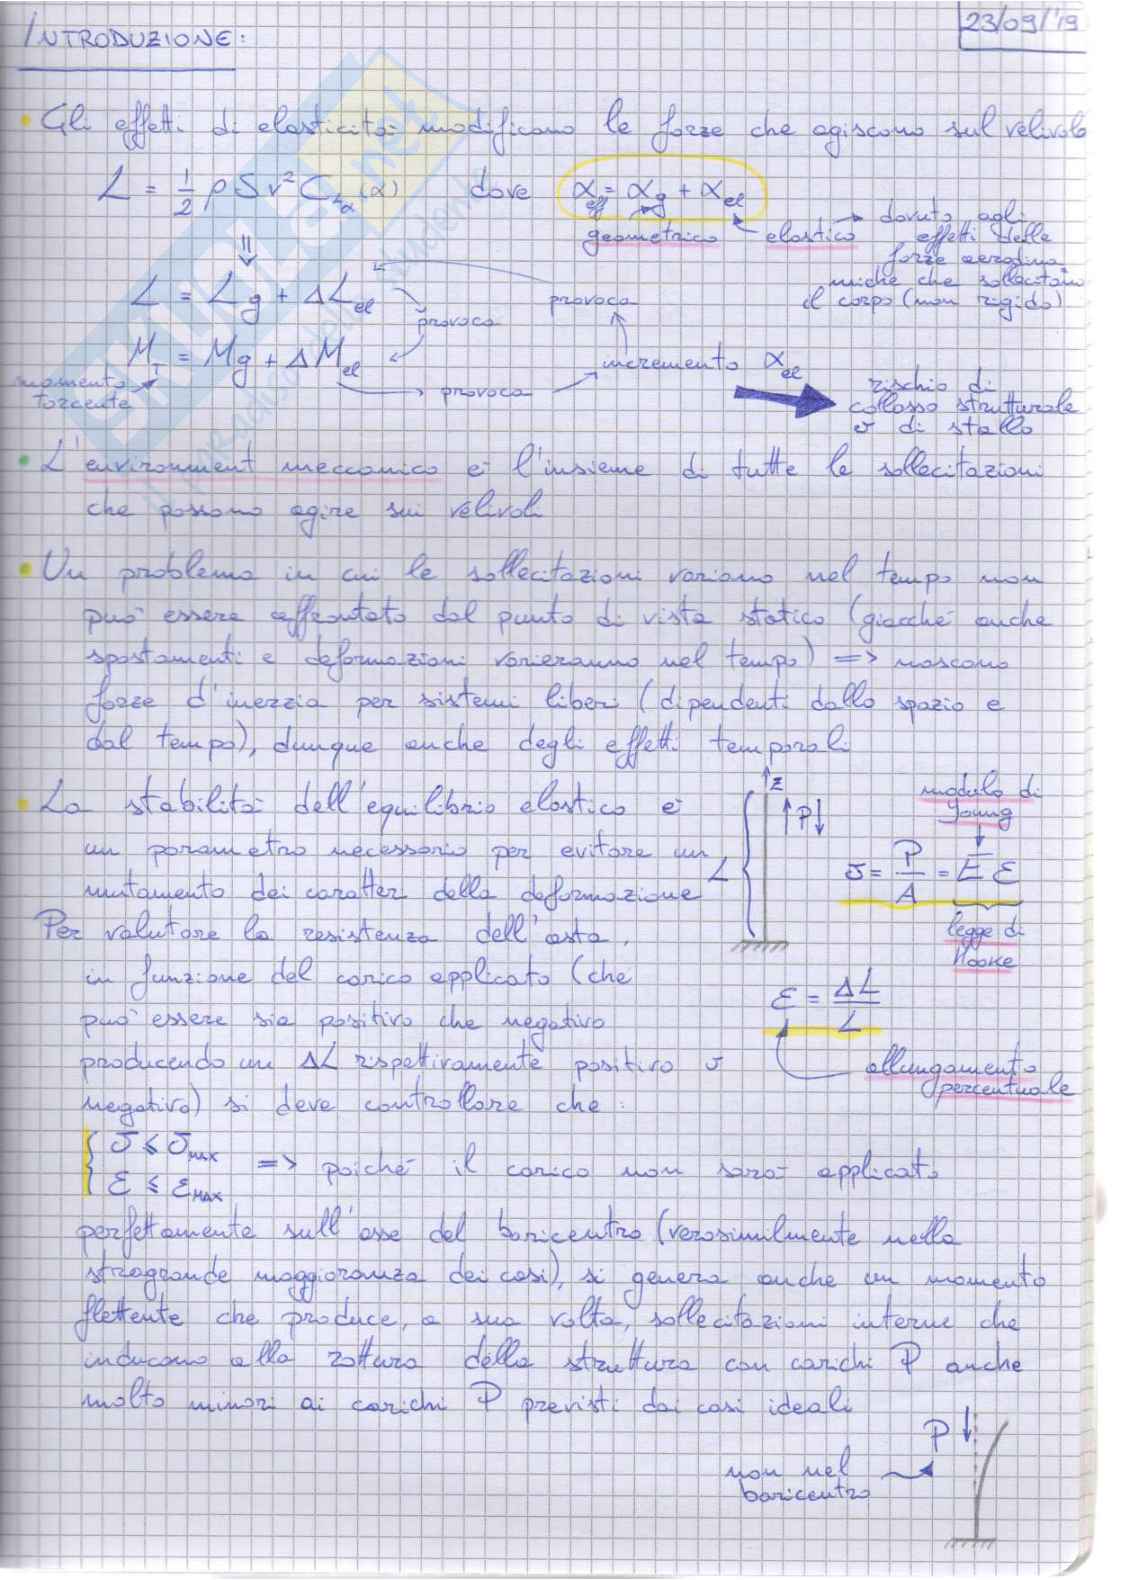 INTRODUZIONE:
23/09/'19
• Gli effetti di elasticità modificano le forze che agiscono sul velivolo
L = 1/2 ρ S v² C_Lα (α) dove α_eff = α_g + α_el
geometrico elastico → dovuto agli
effetti delle
forze aerodina
miche che sollecitano
il corpo (non rigido)
⇓
L = L_g + ΔL_el
provoca
provoca
M_T = M_g + ΔM_el
incremento α_el
momento
torcente
provoca
rischio di
collasso strutturale
o di stallo
• L'environment meccanico è l'insieme di tutte le sollecitazioni
che possono agire sui velivoli
• Un problema in cui le sollecitazioni variano nel tempo non
può essere affrontato dal punto di vista statico (giacché anche
spostamenti e deformazioni varieranno nel tempo) => nascono
forze d'inerzia per sistemi liberi (dipendenti dallo spazio e
dal tempo), dunque anche degli effetti temporali
• La stabilità dell'equilibrio elastico è
un parametro necessario per evitare un
mutamento dei caratter della deformazione
Per valutare la resistenza dell'asta,
in funzione del carico applicato (che
può essere sia positivo che negativo
producendo un ΔL rispettivamente positivo o
negativo) si deve controllare che:
z
P
L
modulo di
Young
σ = P/A = E ε
legge di
Hooke
ε = ΔL/L
allungamento
percentuale
{ σ ≤ σ_MAX
ε ≤ ε_MAX
=> poiché il carico non sarà applicato
perfettamente sull'asse del baricentro (verosimilmente nella
stragrande maggioranza dei casi), si genera anche un momento
flettente che produce, a sua volta, sollecitazioni interne che
inducono alla rottura della struttura con carichi P anche
molto minori ai carichi P previsti dai casi ideali
P
non nel
baricentro